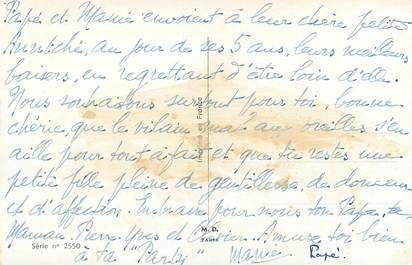 Papé et Manié envoient à leur chère petite
au jour de ses 5 ans, leurs meilleurs
baisers, en regrettant d'être loin d'elle.
Nous souhaitons surtout pour toi, bonne
chérie, que le vilain "mal" aux oreilles s'en
aille pour tout à fait et que tu restes une
petite fille pleine de gentillesse, de douceur
et d'affection. Embrasse pour nous ton Papa, ta
Maman, Pierre-Yves et Olivier. Amuse toi bien
à ta "Party" Manié Papé.
Imprimé en France
M. D.
PARIS
Série n° 2550